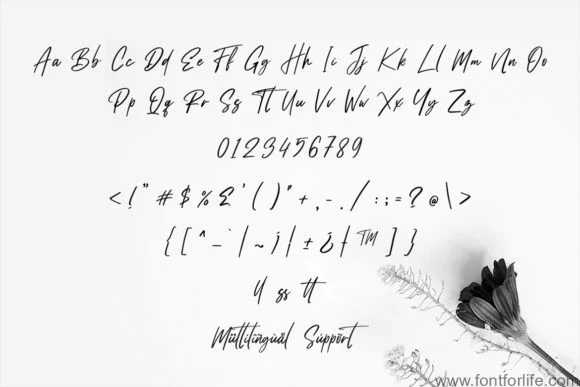 Aa Bb Cc Dd Ee Ff Gg Hh Ii Jj Kk Ll Mm Nn Oo
Pp Qq Rr Ss Tt Uu Vv Ww Xx Yy Zz
0123456789
< ! " # $ % & ' ( ) * + , - . / : ; = ? @ \ >
{ [ ^ _ ` | ~ ¡ ¦ ± ¿ ƒ ™ ] }
ll ss tt
Mültilingüãl Süppört
www.fontforlife.com